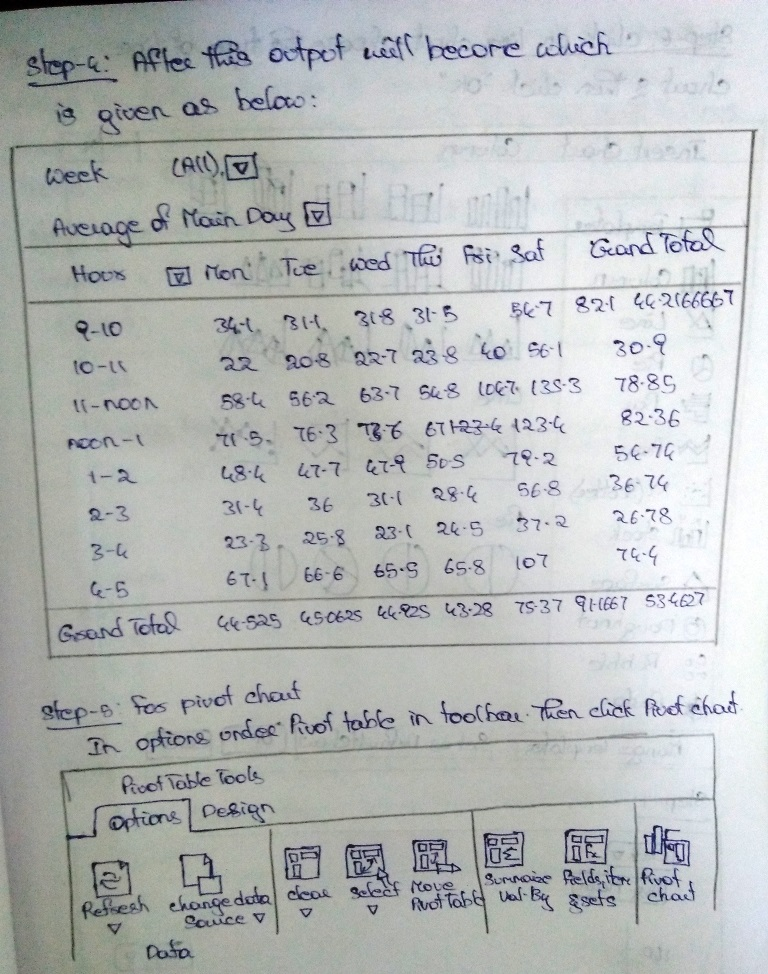 Step-4: After this output will become which
is given as below:
Week (All)
Average of Main Day
Hour Mon Tue Wed Thu Fri Sat Grand Total
9-10 34.1 31.1 31.8 31.5 54.7 82.1 44.2166667
10-11 22 20.8 22.7 23.8 40 56.1 30.9
11-noon 58.4 56.2 63.7 54.8 104.7 135.3 78.85
noon-1 71.5 76.3 73.6 67.1 123.4 123.4 82.36
1-2 48.4 47.7 47.9 50.5 79.2 54.74
2-3 31.4 36 31.1 28.4 56.8 36.74
3-4 23.3 25.8 23.1 24.5 37.2 26.78
4-5 67.1 66.6 65.5 65.8 107 74.4
Grand Total 44.525 45.0625 44.925 43.28 75.37 91.1667 53.4627
Step-5: For pivot chart
In options under Pivot table in toolbar. Then click Pivot chart.
Pivot Table Tools
Options Design
Refresh Change data Source Clear Select Move Pivot Table Summaize Val-By Fields, item & sets Pivot chart
Data